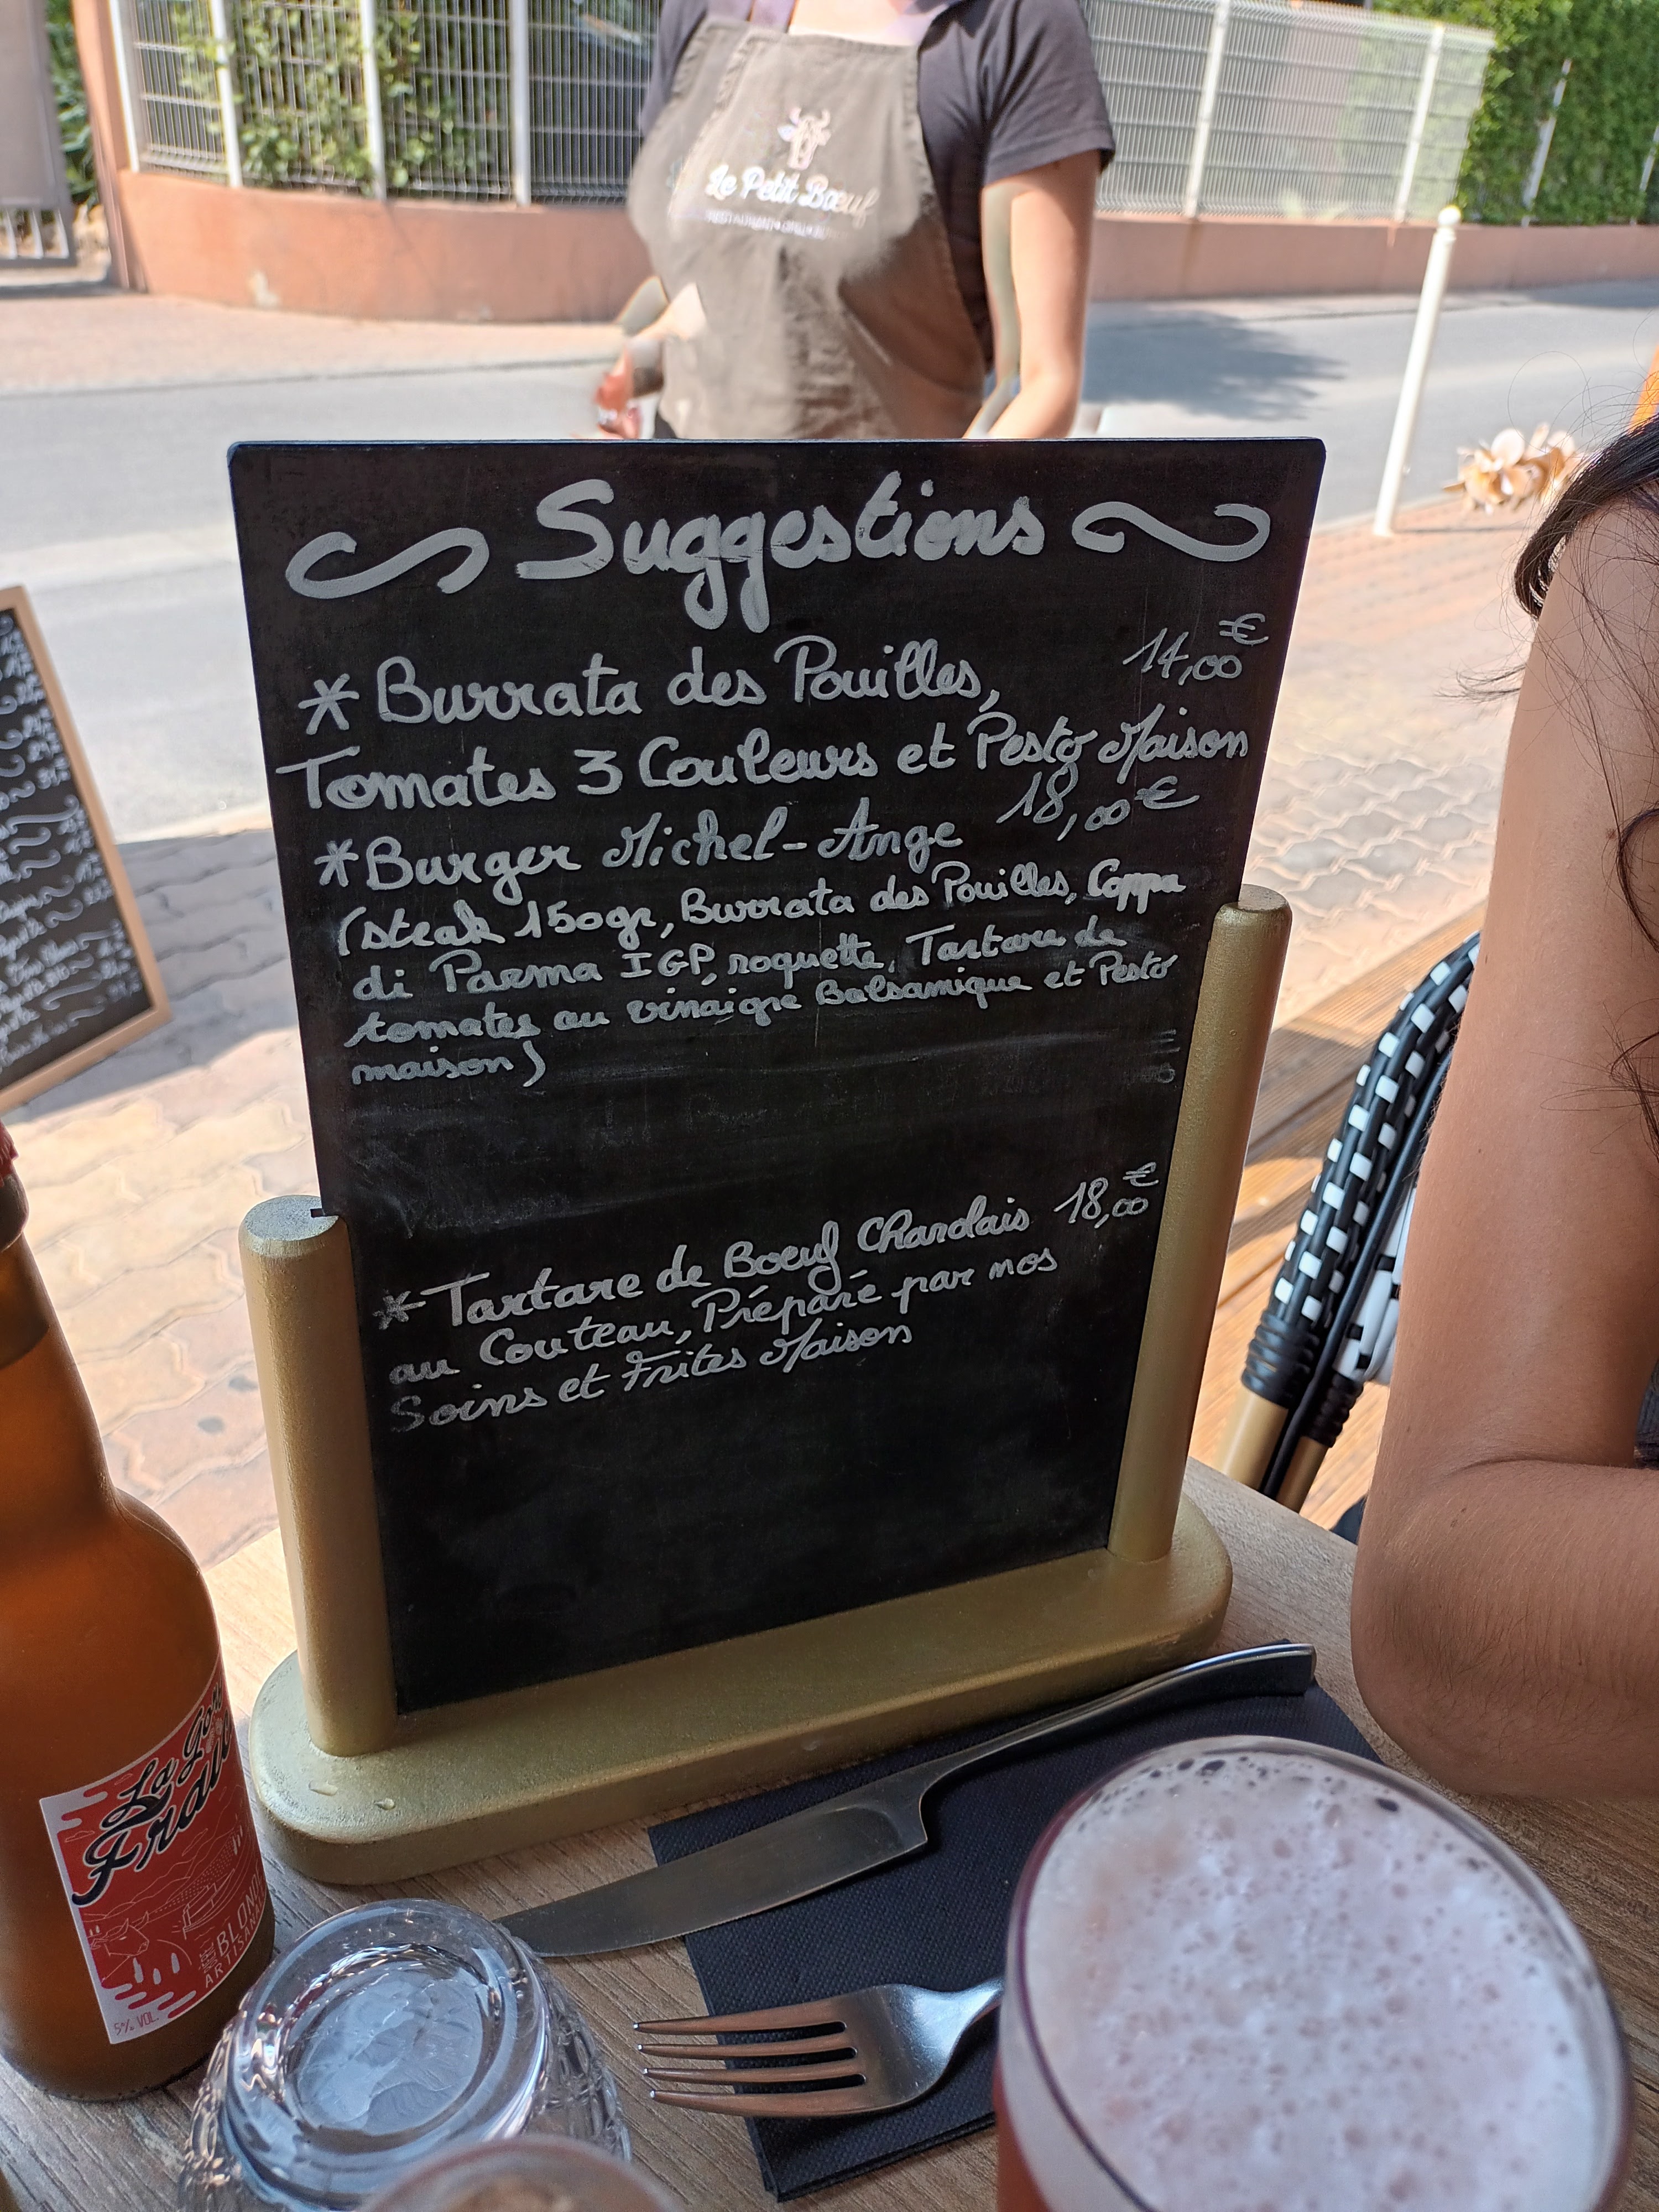 Le Petit Bœuf
Suggestions
* Burrata des Pouilles, 14,00€
Tomates 3 Couleurs et Pesto Maison
* Burger Michel-Ange 18,00€
(steak 150gr, Burrata des Pouilles, Coppa
di Parma IGP, roquette, Tartare de
tomates au vinaigre Balsamique et Pesto
maison)
* Tartare de Boeuf Charolais 18,00€
au Couteau, Préparé par nos
Soins et Frites Maison
La
BLON
ARTISAN
5% VOL.